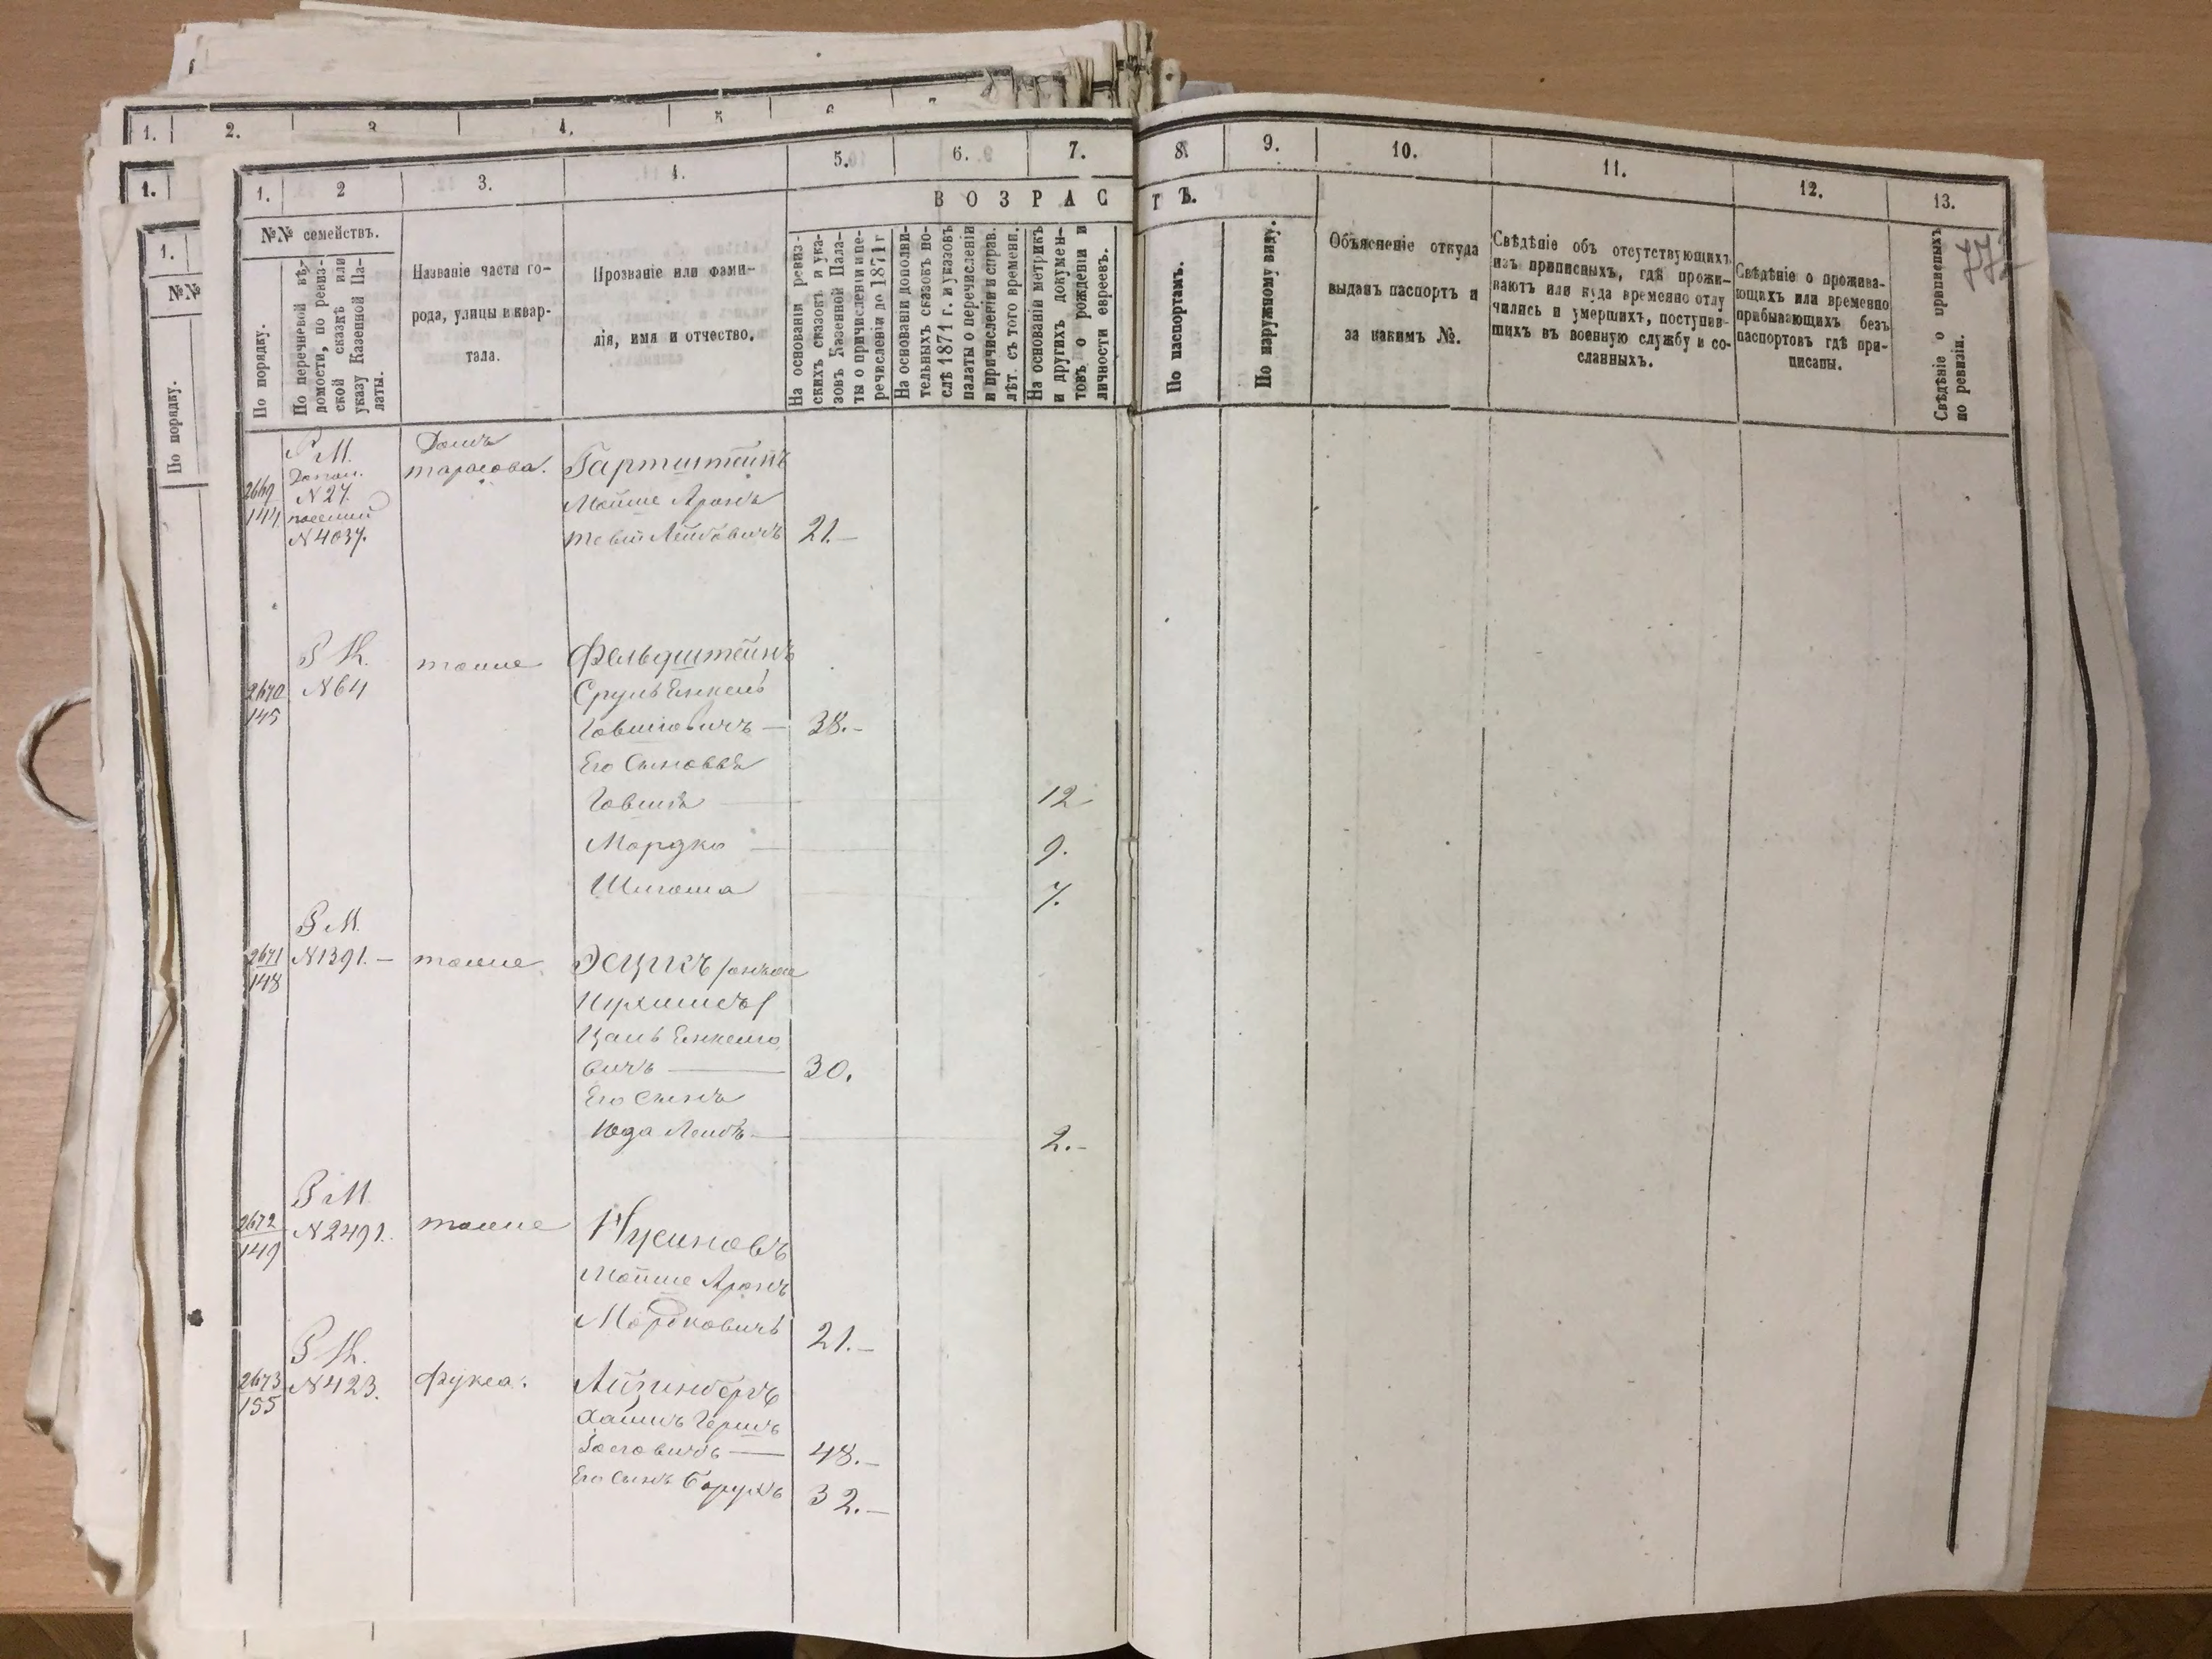 1. 2. 3. 4. 5 6 7
1.
№№
По порядку.
1. 2 3. 4. 5. 6. 7. 8. 9. 10. 11. 12. 13.
ВОЗРАСТЪ.
№№ семействъ.
По порядку.
По перечневой вѣ-
домости, по ревиз-
ской сказкѣ или
указу Казенной Па-
латы.
Названіе части го-
рода, улицы и квар-
тала.
Прозваніе или фами-
лія, имя и отчество.
На основаніи ревиз-
скихъ сказокъ и ука-
зовъ Казенной Пала-
ты о причисленіи и пе-
речисленіи до 1871 г
На основаніи дополни-
тельныхъ сказокъ по-
слѣ 1871 г. и указовъ
палаты о перечисленіи
и причисленіи и справ.
лѣт. съ того времени.
На основаніи метрикъ
и другихъ докумен-
товъ о рожденіи и
личности евреевъ.
По паспортамъ.
По наружному виду.
Объясненіе откуда
выданъ паспортъ и
за какимъ №.
Свѣдѣніе объ отсутствующихъ
изъ приписныхъ, гдѣ прожи-
ваютъ или куда временно отлу
чились и умершихъ, поступив-
шихъ въ военную службу и со-
сланныхъ.
Свѣдѣніе о прожива-
ющихъ или временно
прибывающихъ безъ
паспортовъ гдѣ при-
писаны.
Свѣдѣніе о приписныхъ
по ревизіи.
2669
144
Р М.
N 27.
N 4037.
Домъ
тарасова.
Гартштейнъ
Мойше Аронъ
тевій Лейбовичъ 21.—
2670
145
Р К.
N 64
тоже
Фельдштейнъ
Сруль Енкель
Говшіовичъ — 38.—
Его Сыновья
Говшія 12
Мордко 9.
Шлиома 7.
2671
148
Р М.
N 1391.—
тоже
Эсцикъ /онъже
Цаль Енкеліо
вичъ — 30.
Его Сынъ
Юда Лейбъ — 2.—
2672
149
Р М
N 2491.
тоже
Нусиновъ
Мойше Аронъ
Мордковичъ 21.—
2673
155
Р К.
N 423.
Фукса.
Айзинбергъ
Хаимъ Гершъ
Іоселовичъ — 48.—
Его Сынъ Борухъ 32.—